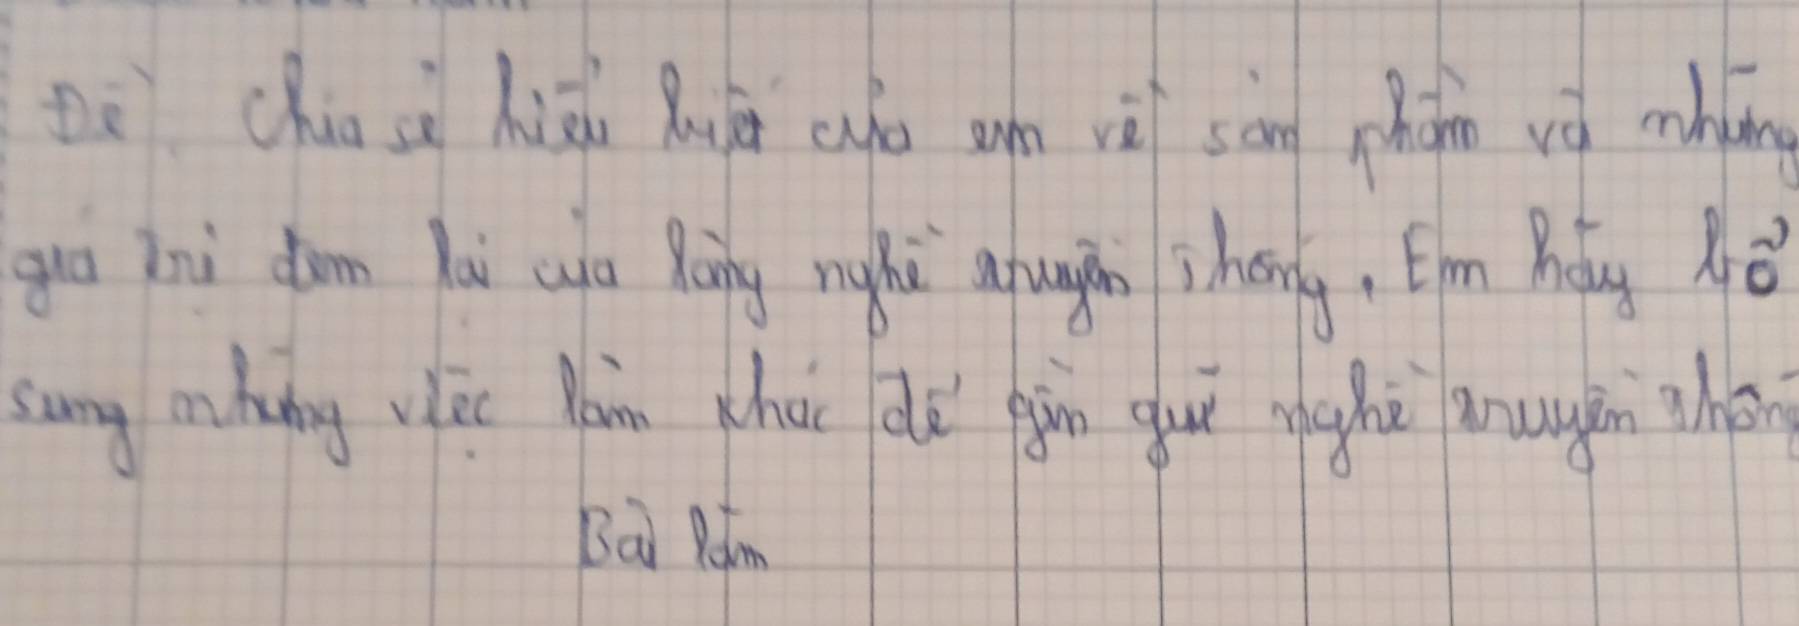 Đề: Chia sẻ hiểu biết của em về sản phẩm và những
giá trị đem lại của làng nghề truyền thống. Em hãy bổ
sung những việc làm khác để gìn giữ nghề truyền thống
Bài làm